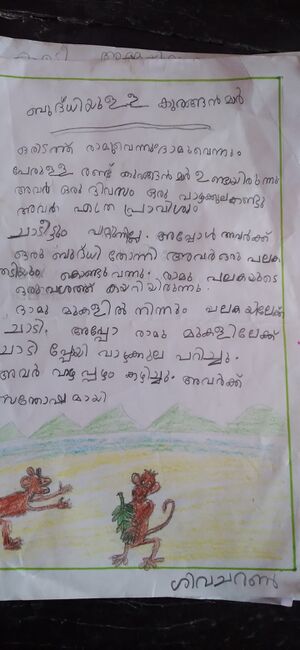 ബുദ്ധിയുള്ള കുരങ്ങൻമാർ
ഒരിടത്ത് രാമുവെന്നുംദാമുവെന്നും
പേരുള്ള രണ്ട് കുരങ്ങൻമാർ ഉണ്ടായിരുന്നു
അവർ ഒരു ദിവസം ഒരു വാഴക്കുലകണ്ടു
അവർ എത്ര പ്രാവിശ്യം
ചാടീട്ടും പറ്റുന്നില്ല. അപ്പോൾ അവർക്ക്
ഒരു ബുദ്ധി തോന്നി അവർ ഒരു പലക
തടിയും കൊണ്ടുവന്നു. രാമു പലകയുടെ
ഒരുവശത്ത് കയറിയിരുന്നു.
ദാമു മുകളിൽ നിന്നും പലകയിലേക്ക്
ചാടി. അപ്പോ രാമു മുകളിലേക്ക്
ചാടി പ്പോയി വാഴക്കുല പറിച്ചു.
അവർ പഴം കഴിച്ചു. അവർക്ക്
സന്തോഷമായി
ശിവചരൺ